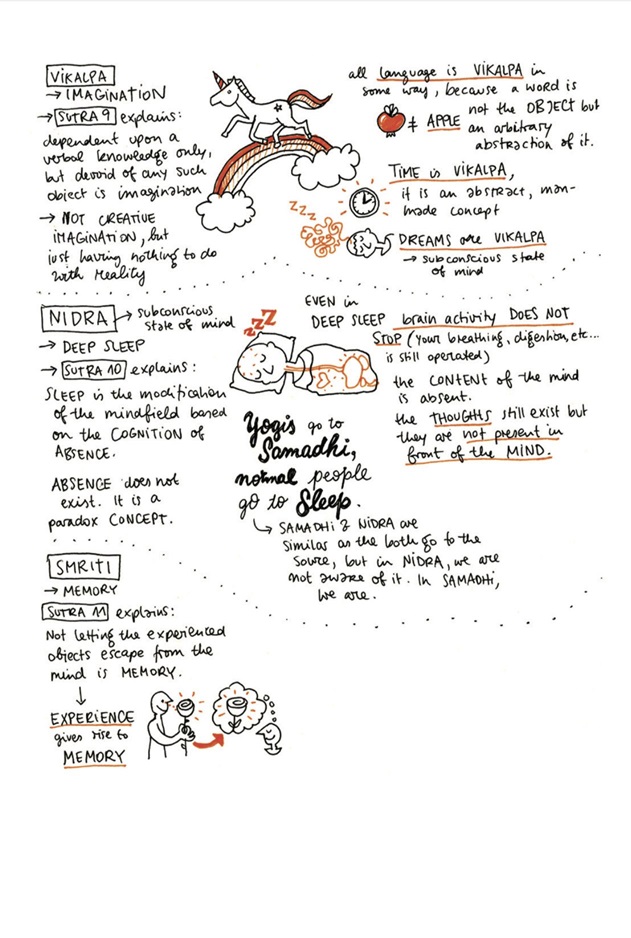 VIKALPA
→ IMAGINATION
→ SUTRA 9 explains:
dependent upon a
verbal knowledge only,
but devoid of any such
object is imagination
→ NOT CREATIVE
IMAGINATION, but
just having nothing to do
with reality
all language is VIKALPA in
some way, because a word is
≠ APPLE not the OBJECT but
an arbitrary
abstraction of it.
TIME is VIKALPA,
it is an abstract, man-
made concept
zzz
DREAMS are VIKALPA
→ subconscious state
of mind
NIDRA → subconscious
state of mind
→ DEEP SLEEP
→ SUTRA 10 explains:
SLEEP is the modification
of the mindfield based
on the COGNITION of
ABSENCE.
ABSENCE does not
exist. It is a
paradox CONCEPT.
zzZ
EVEN in
DEEP SLEEP brain activity DOES NOT
STOP (your breathing, digestion, etc...
is still operated)
the CONTENT of the mind
is absent.
the THOUGHTS still exist but
they are not present in
front of the MIND.
Yogis go to
Samadhi,
normal people
go to Sleep.
↳ SAMADHI & NIDRA are
similar as the both go to the
source, but in NIDRA, we are
not aware of it. In SAMADHI,
we are.
SMRITI
→ MEMORY
SUTRA 11 explains:
Not letting the experienced
objects escape from the
mind is MEMORY.
↓
EXPERIENCE
gives rise to
MEMORY